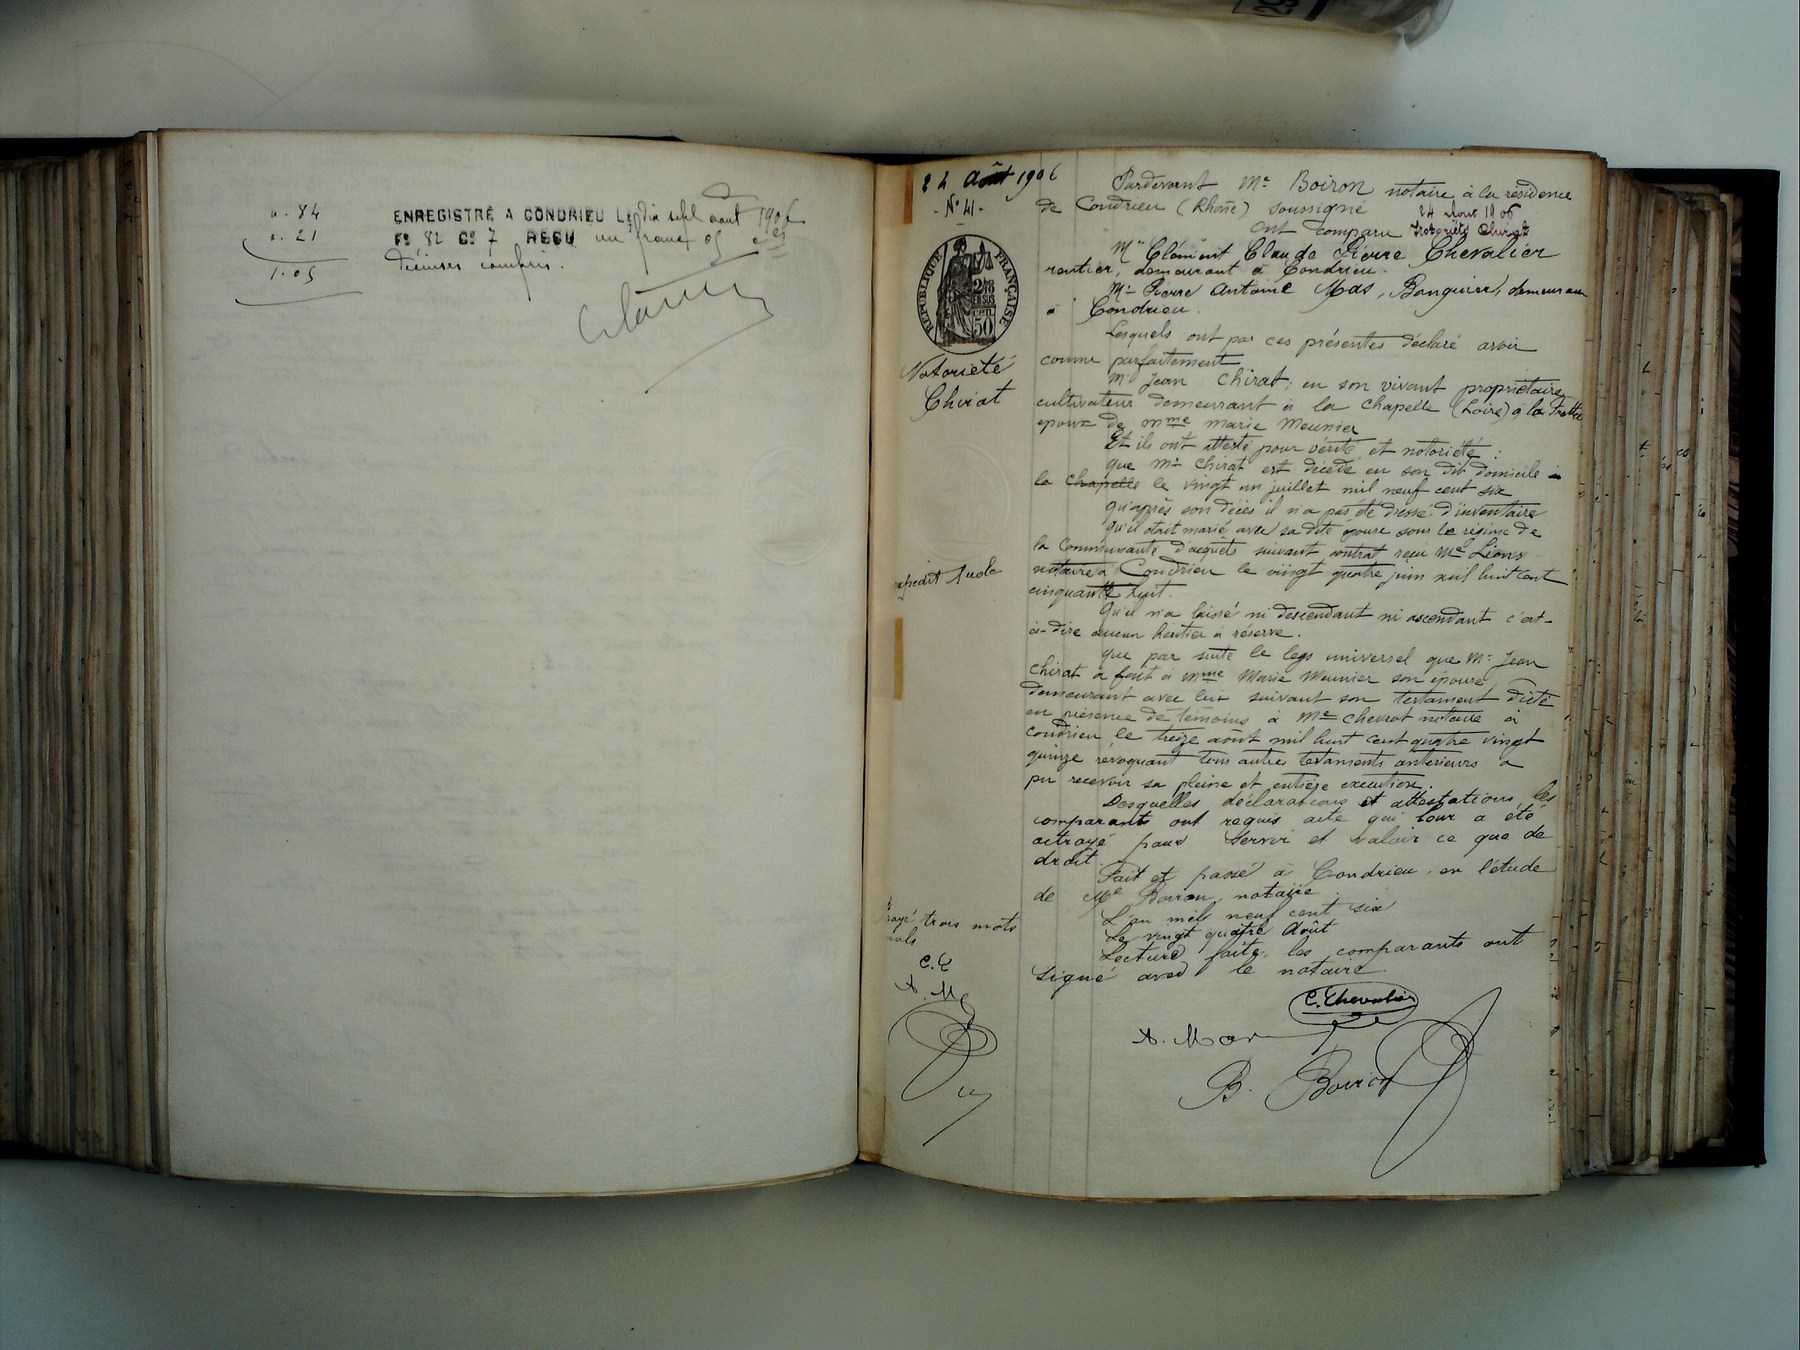 a. 84
c. 21
1.05
ENREGISTRÉ A CONDRIEU LE dix sept aout 1906
F° 82 C° 7 REÇU un franc 05 c es
décimes compris.
24 Août 1906
- N° 41 -
RÉPUBLIQUE FRANÇAISE
2/8 EN SUS
50
Notoriété
Chirat
expédit 1 role
Rayé trois mots
nuls
C. C
A. M
Pardevant Me Boiron notaire à la résidence
de Condrieu (Rhône) soussigné
24 Aout 1906
Ont comparu Notoriété Chirat
Mr Clément Claude Pierre Chevalier
rentier, demeurant à Condrieu.
Mr Pierre Antoine Mas, Banquier, demeurant
à Condrieu.
Lesquels ont par ces présentes déclaré avoir
connu parfaitement
Mr Jean Chirat, en son vivant propriétaire
cultivateur demeurant à la Chapelle (Loire) à la
époux de Mme Marie Meunier
Et ils ont attesté pour vérité et notoriété :
que Mr Chirat est décédé en son dit domicile à
la Chapelle le vingt un juillet mil neuf cent six
qu'après son décès il n'a pas été dressé d'inventaire
qu'il était marié avec sa dite épouse sous le régime de
la Communauté d'acquêts suivant contrat reçu Me Lions
notaire à Condrieu le vingt quatre juin mil huit cent
cinquante huit.
Qu'il n'a laissé ni descendant ni ascendant c'est-
à-dire aucun héritier à réserve.
que par suite le legs universel que Mr Jean
Chirat a fait à Mme Marie Meunier son épouse
demeurant avec lui suivant son testament dicté
en présence de témoins à Me Chevrot notaire à
Condrieu le treize août mil huit cent quatre vingt
quinze révoquant tous autres testaments antérieurs a
pu recevoir sa pleine et entière exécution.
Desquelles déclarations et attestations, les
comparants ont requis acte qui leur a été
octroyé pour servir et valoir ce que de
droit.
Fait et passé à Condrieu en l'étude
de Me Boiron, notaire
L'an mil neuf cent six
Le vingt quatre Août
Lecture faite, les comparants ont
signé avec le notaire.
C. Chevalier
A. Mas
B. Boiron